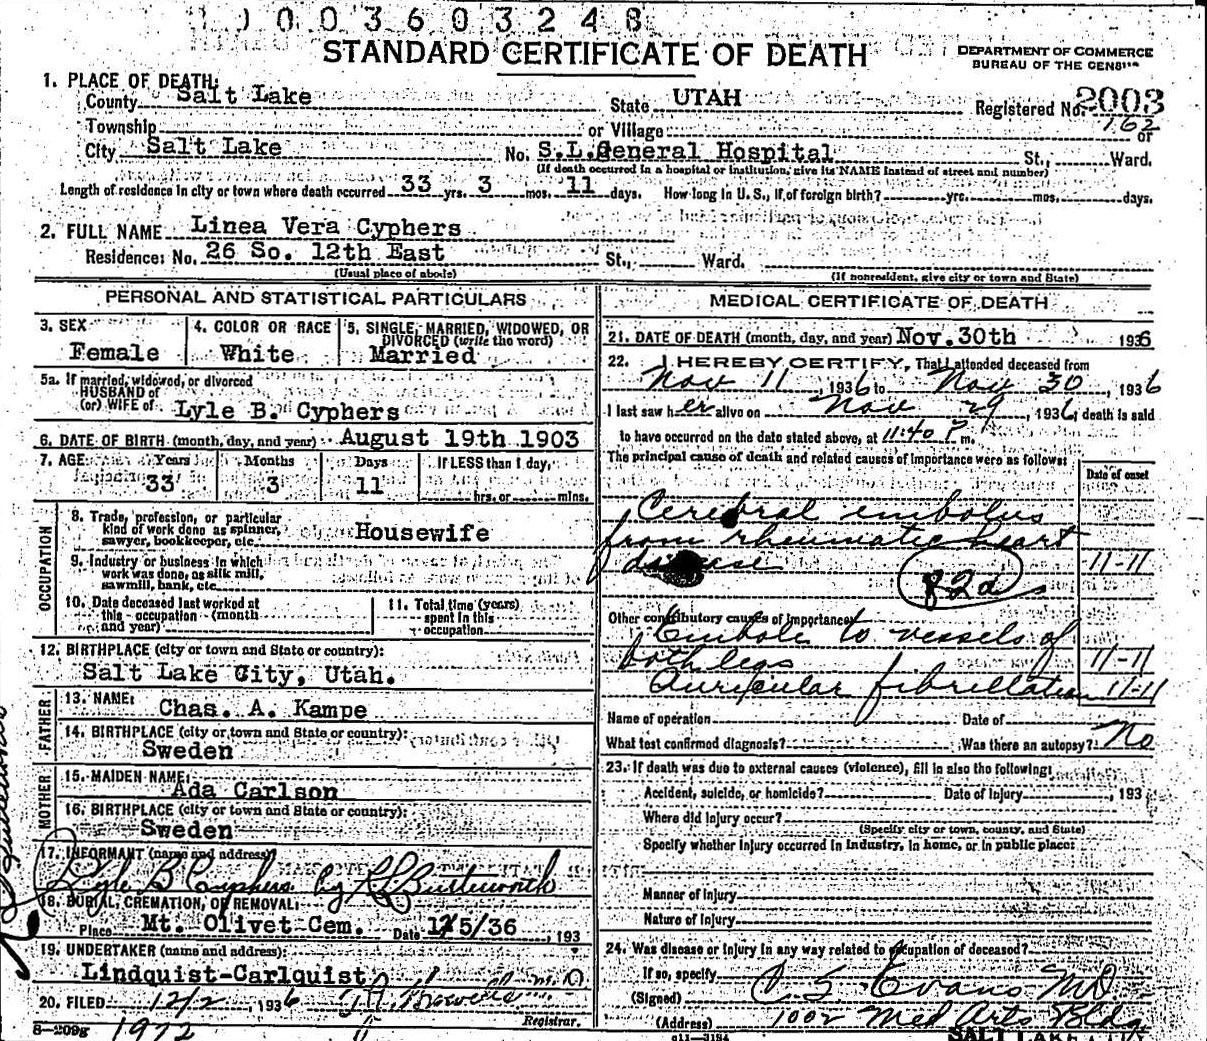 0003603248
STANDARD CERTIFICATE OF DEATH
DEPARTMENT OF COMMERCE
BUREAU OF THE CENSUS
1. PLACE OF DEATH:
County Salt Lake State UTAH Registered No. 2003
162
Township or Village or
City Salt Lake No. S.L.General Hospital St., Ward.
(If death occurred in a hospital or institution, give its NAME instead of street and number)
Length of residence in city or town where death occurred 33 yrs. 3 mos. 11 days. How long in U. S., if of foreign birth? yrs. mos. days.
2. FULL NAME Linea Vera Cyphers
Residence: No. 26 So. 12th East St., Ward.
(Usual place of abode) (If nonresident, give city or town and State)
PERSONAL AND STATISTICAL PARTICULARS
3. SEX 4. COLOR OR RACE 5. SINGLE, MARRIED, WIDOWED, OR
DIVORCED (write the word)
Female White Married
5a. If married, widowed, or divorced
HUSBAND of
(or) WIFE of Lyle B. Cyphers
6. DATE OF BIRTH (month, day, and year) August 19th 1903
7. AGE Years Months Days If LESS than 1 day,
33 3 11 hrs. or mins.
OCCUPATION
8. Trade, profession, or particular
kind of work done as spinner,
sawyer, bookkeeper, etc. Housewife
9. Industry or business in which
work was done, as silk mill,
sawmill, bank, etc.
10. Date deceased last worked at
this occupation (month
and year)
11. Total time (years)
spent in this
occupation
12. BIRTHPLACE (city or town and State or country):
Salt Lake City, Utah.
FATHER
13. NAME:
Chas. A. Kampe
14. BIRTHPLACE (city or town and State or country):
Sweden
MOTHER
15. MAIDEN NAME:
Ada Carlson
16. BIRTHPLACE (city or town and State or country):
Sweden
17. INFORMANT (name and address)
Lyle B Cyphers by R L Butterworth
18. BURIAL, CREMATION, OR REMOVAL:
Place Mt. Olivet Cem. Date 12/5/36, 193
19. UNDERTAKER (name and address):
Lindquist-Carlquist
20. FILED 12/2, 1936 M.D.
Registrar.
8-209g 1972
MEDICAL CERTIFICATE OF DEATH
21. DATE OF DEATH (month, day, and year) Nov. 30th 1936
22. I HEREBY CERTIFY, That I attended deceased from
Nov 11, 1936 to Nov 30, 1936
I last saw her alive on Nov 29, 1936, death is said
to have occurred on the date stated above, at 11:40 P m.
The principal cause of death and related causes of importance were as follows:
Date of onset
Cerebral embolus
from rheumatic heart
disease 11-11
82a
Other contributory causes of importance:
Embole to vessels of
both legs 11-11
Auricular fibrillation 11-11
Name of operation Date of
What test confirmed diagnosis? Was there an autopsy? No
23. If death was due to external causes (violence), fill in also the following:
Accident, suicide, or homicide? Date of injury, 193
Where did injury occur?
(Specify city or town, county, and State)
Specify whether injury occurred in industry, in home, or in public place:
Manner of injury
Nature of injury
24. Was disease or injury in any way related to occupation of deceased?
If so, specify
(Signed) C S Evans MD
(Address) 1002 Med Arts Bldg
c11-3184 SALT LAKE CITY